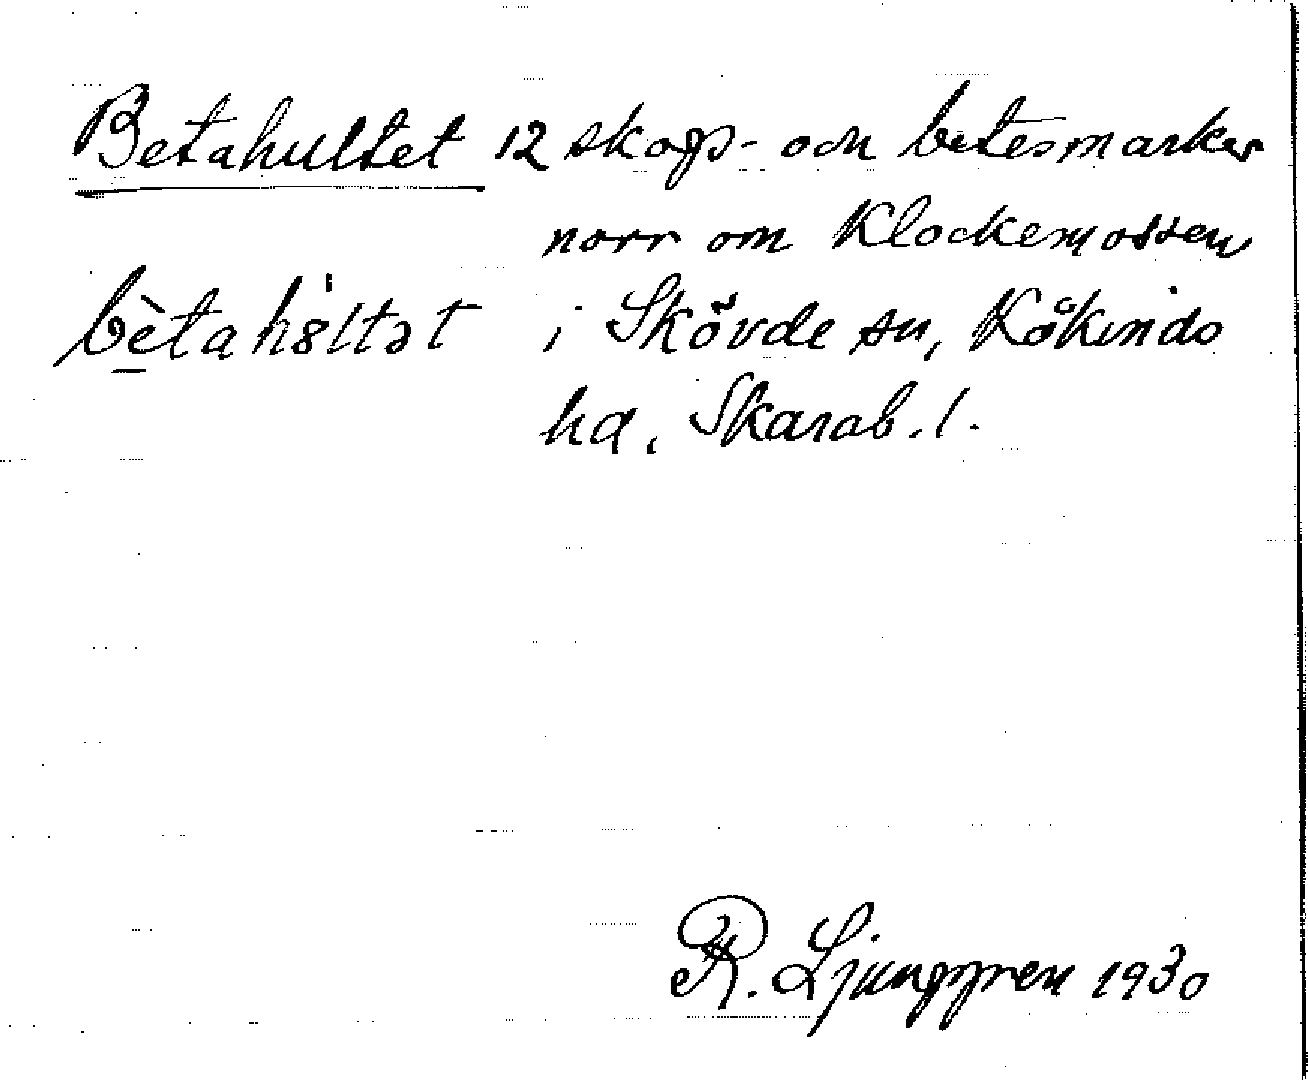 Betahultet 12 skogs- och betesmarker
norr om Klockemossen
bètahıltət i Skövde sn, Kåkinds
hd, Skarab. l.
R. Ljunggren 1930